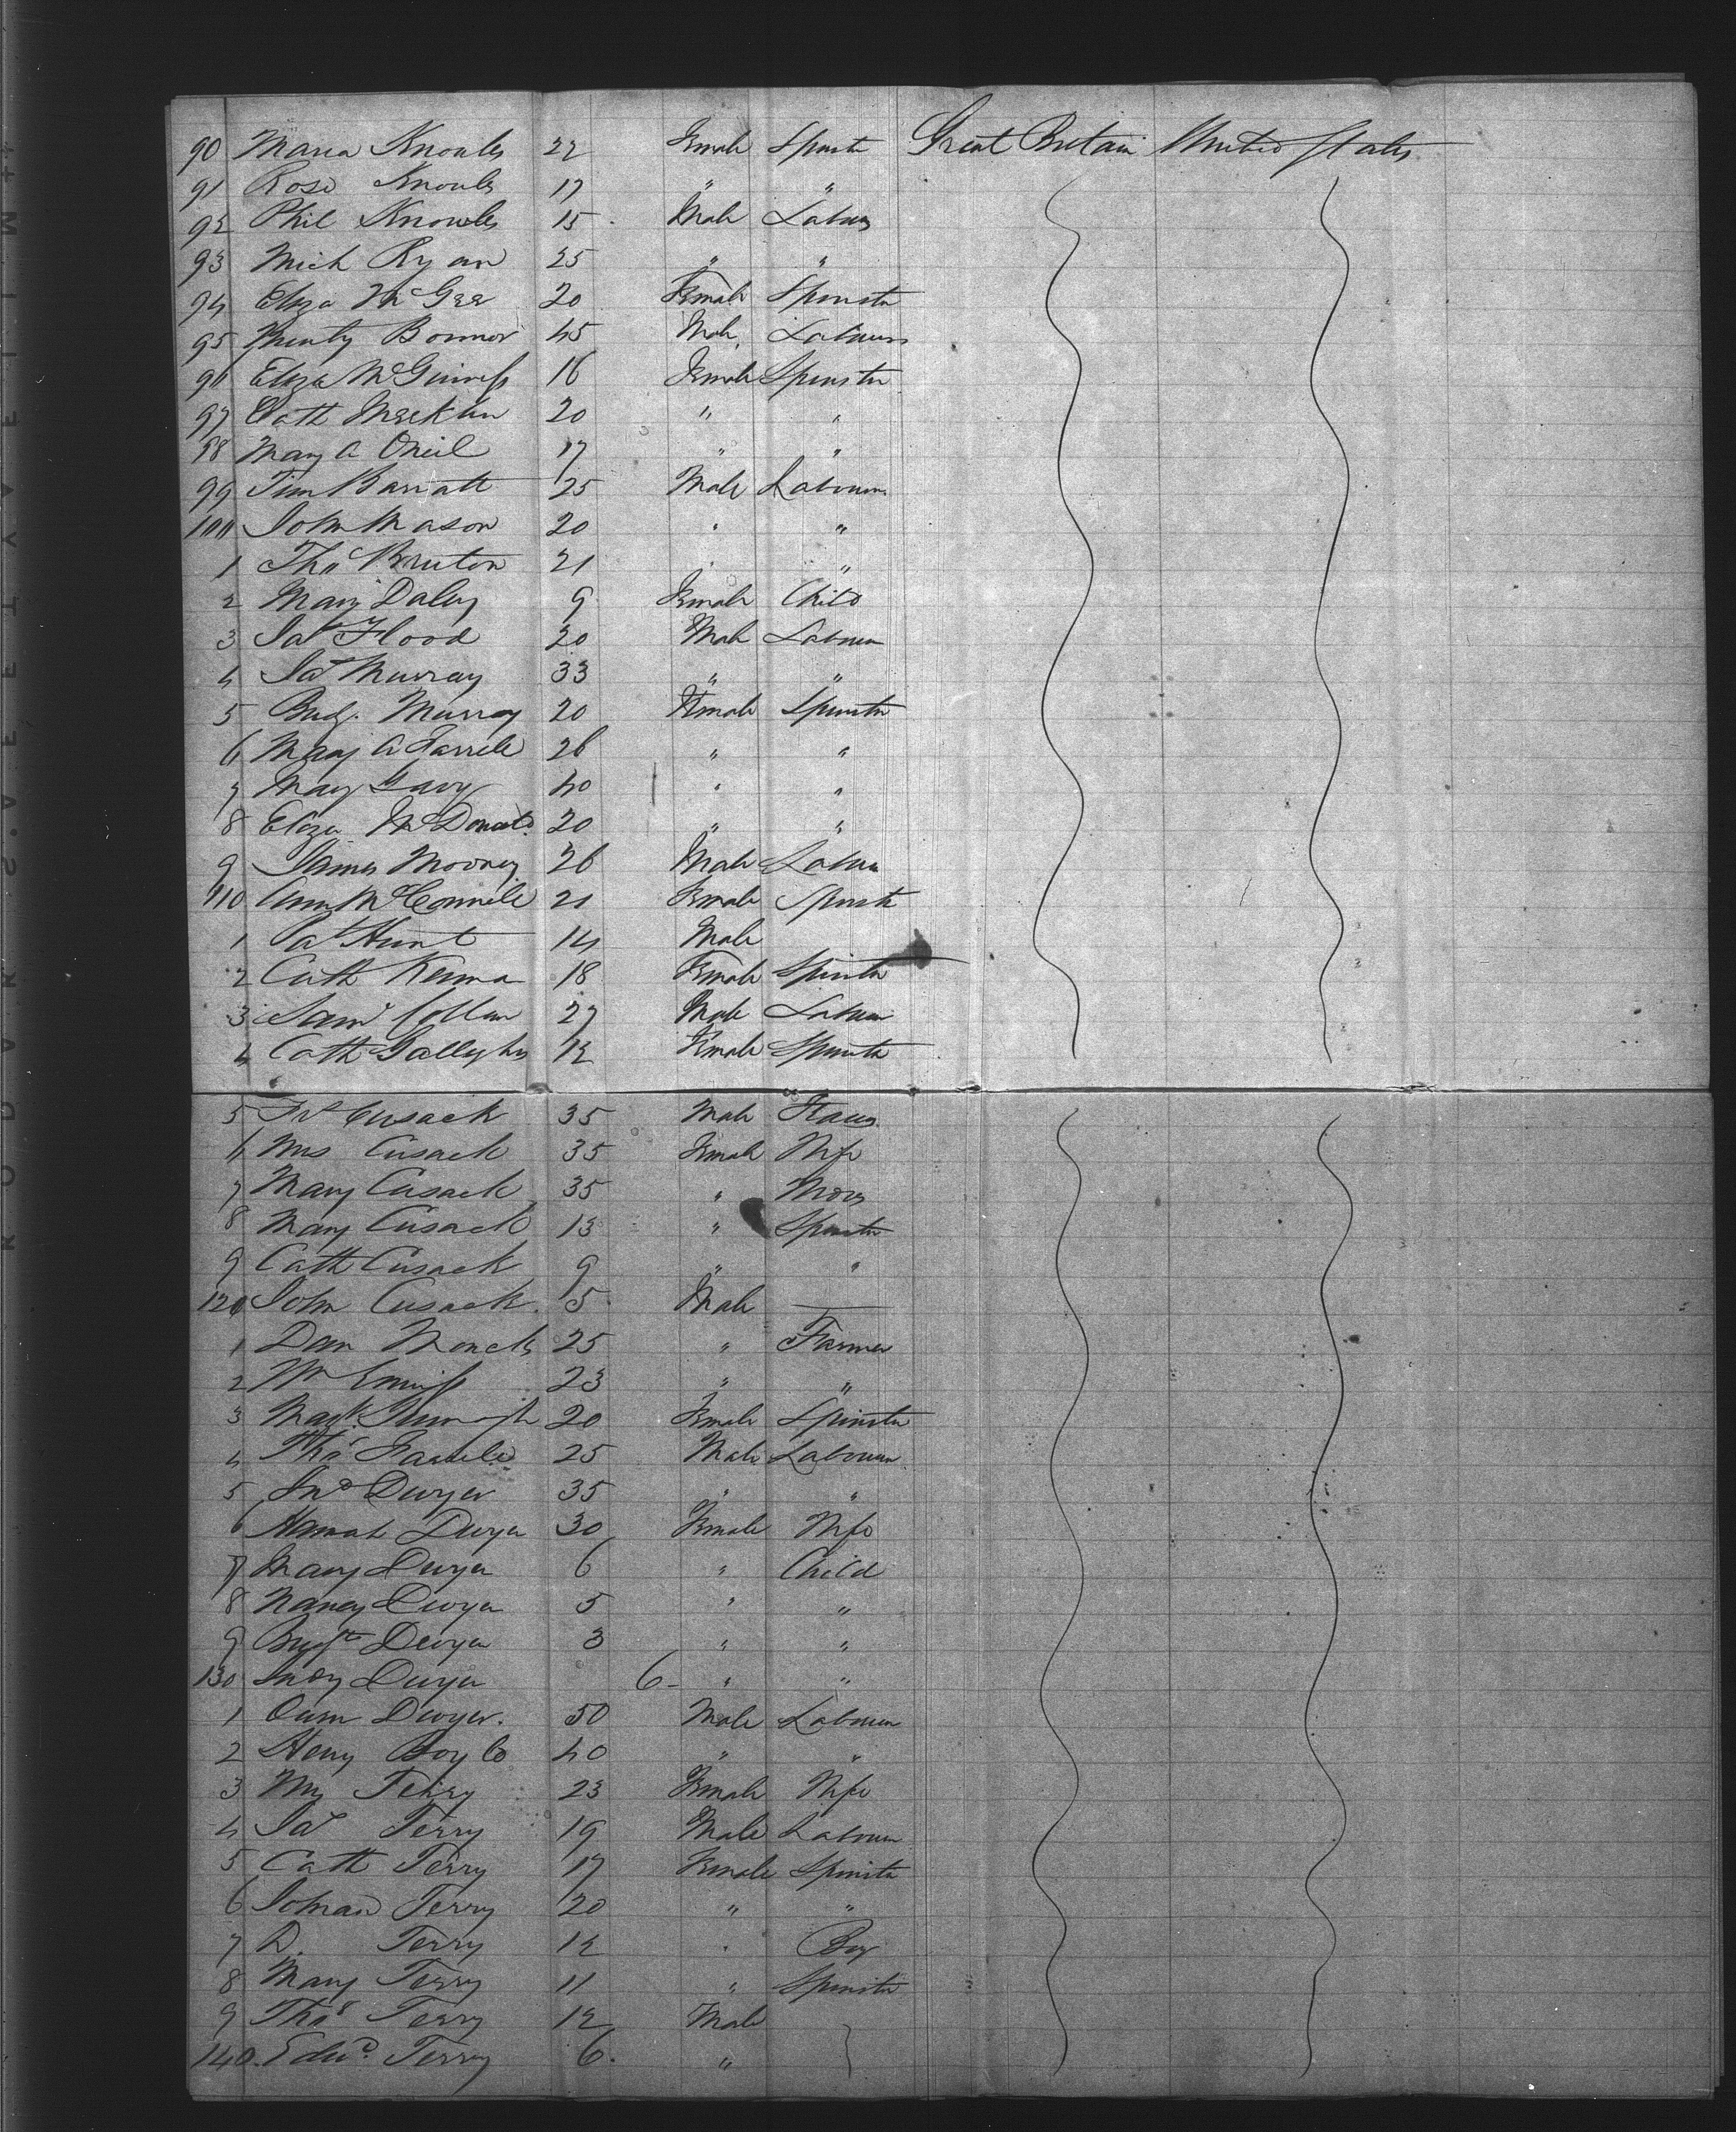 90 Maria Knowles 22 Female Spinstr Great Britain United States
91 Rose Knowls 17 " "
92 Phil Knowles 15 Male Labour
93 Mich Ryan 25 " "
94 Eliza McGee 20 Female Spinster
95 Bonner 45 Male Labourer
96 Eliza McGuiness 16 Female Spinster
97 Cath 20 " "
98 Mary A Oneil 17 " "
99 Tim Barratt 25 Male Labourer
100 John Mason 20 " "
1 Thos Bruton 21 " "
2 Mary Daley 9 Female Child
3 Jas Flood 20 Male Labourer
4 Jas Murray 33 " "
5 Bridg. Murray 20 Female Spinster
6 Mary A Farrell 26 " "
7 Mary Gavy 40 " "
8 Eliza McDonald 20 " "
9 James Mooney 26 Male Labour
110 Ann McConnell 21 Female Spinstr
1 Pat Hunt 14 Male
2 Cath 18 Female Spinster
3 Saml 27 Male Labour
4 Cath Gallagher 12 Female Spinster
5 Cusack 35 Male
6 Mrs Cusack 35 Female Wife
7 Mary Cusack 35 "
8 Mary Cusack 13 " Spinster
9 Cath Cusack 9 " "
120 John Cusack 5 Male —
1 Dan 25 " Farmer
2 Wm 23 " "
3 Margt 20 Female Spinster
4 Thos 25 Male Labourer
5 Jno Dwyer 35 " "
6 Hannah Dwyer 30 Female Wife
7 Mary Dwyer 6 " Child
8 Nancy Dwyer 5 " "
9 Bridgt Dwyer 3 " "
130 Dwyer 6 " "
1 Dwyer. 50 Male Labourer
2 Henry Boyle 40 " "
3 Terry 23 Female Wife
4 Jas Terry 19 Male Labourer
5 Cath Terry 17 Female Spinster
6 Johan Terry 20 " "
7 D. Terry 12 " Boy
8 Mary Terry 11 " Spinster
9 Thos Terry 12 Male
140. Edwd. Terry 6. "